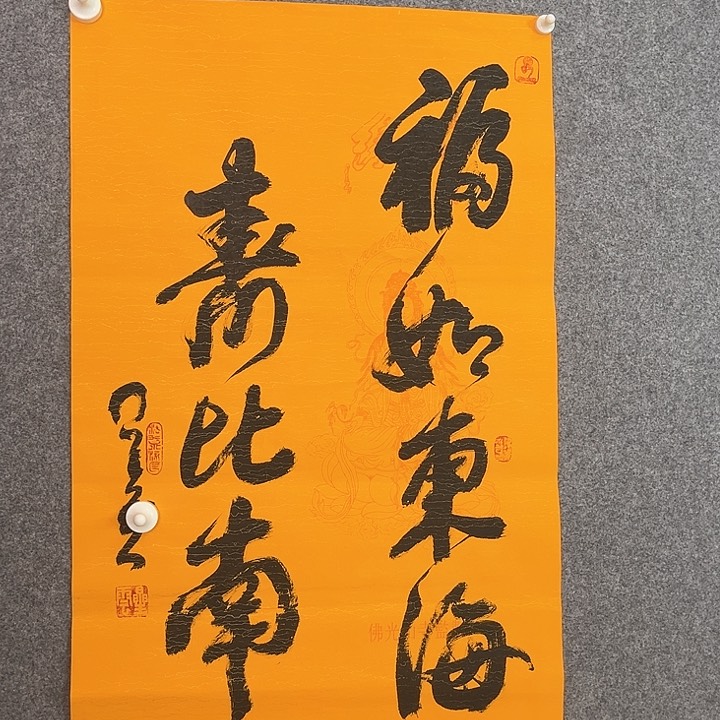 福如東海
寿比南
佛光